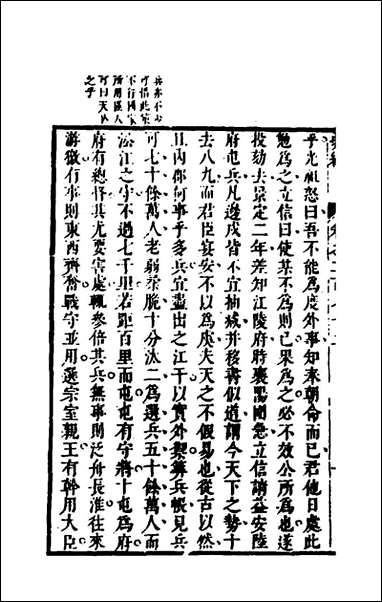 兵亦不少
可惜此策
不行國家
所用匪人
可曰天亾
之乎
乎光祖怒曰吾不能為度外事知奉朝命而已君他日處此
勉為之立信曰使某不為則已果為之必不效公所為也遂
投劾去景定二年差知江陵府時襄陽圍急立信請益安陸
府屯兵凡邊戍皆不宜抽减并移書似道謂今天下之勢十
去八九而君臣宴安不以為虞夫天之不假易也從古以然
且內郡何事乎多兵宜盡出之江干以實外禦算兵帳見兵
可七十餘萬人老弱柔脆十分汰二為選兵五十餘萬人而
沿江之守不過七千里若距百里而屯屯有守將十屯為府
府有總督其尤要害處輒參倍其兵無事則泛舟長淮往來
游徼有事則東西齊奮戰守並用選宗室親王有幹用大臣